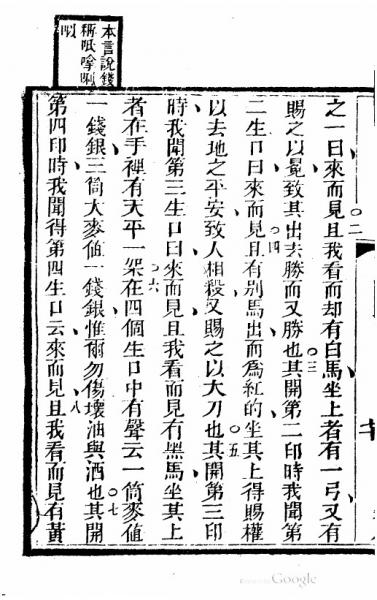 之一曰來而見且我看而却有白馬坐上者有一弓又有
賜之以冕致其出去勝而又勝也其開第二印時我聞第
二生口曰來而見且有別馬出而爲紅的坐其上得賜權
以去地之平安致人相殺又賜之以大刀也其開第三印
時我聞第三生口曰來而見且我看而見有黑馬坐其上
者在手裡有天平一架在四個生口中有聲云一筒麥值
一錢銀三筒大麥值一錢銀惟爾勿傷壞油與酒也其開
第四印時我聞得第四生口云來而見且我看而見有黃
本言說錢
稱呧
〇二
〇三
〇四
〇五
〇六
〇七
八
Google